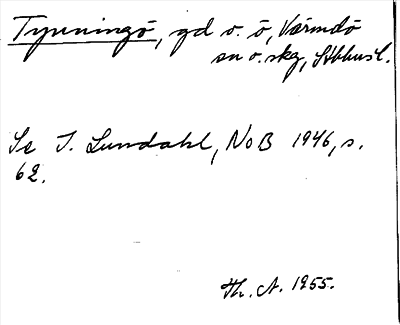 Tynningö, gd o. ö, Värmdö
sn o. skg, Sthhusl.
Se I. Lundahl, NoB 1946, s.
62.
Th. A. 1955.